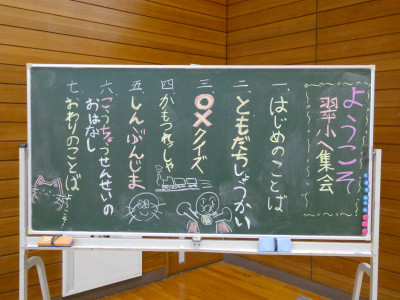 ようこそ
翠小へ集会
一、はじめのことば
二、ともだちしょうかい
三、○×クイズ
四、かもつれっしゃ
五、しんぶんじま
六、こうちょうせんせいの
おはなし
七、おわりのことば